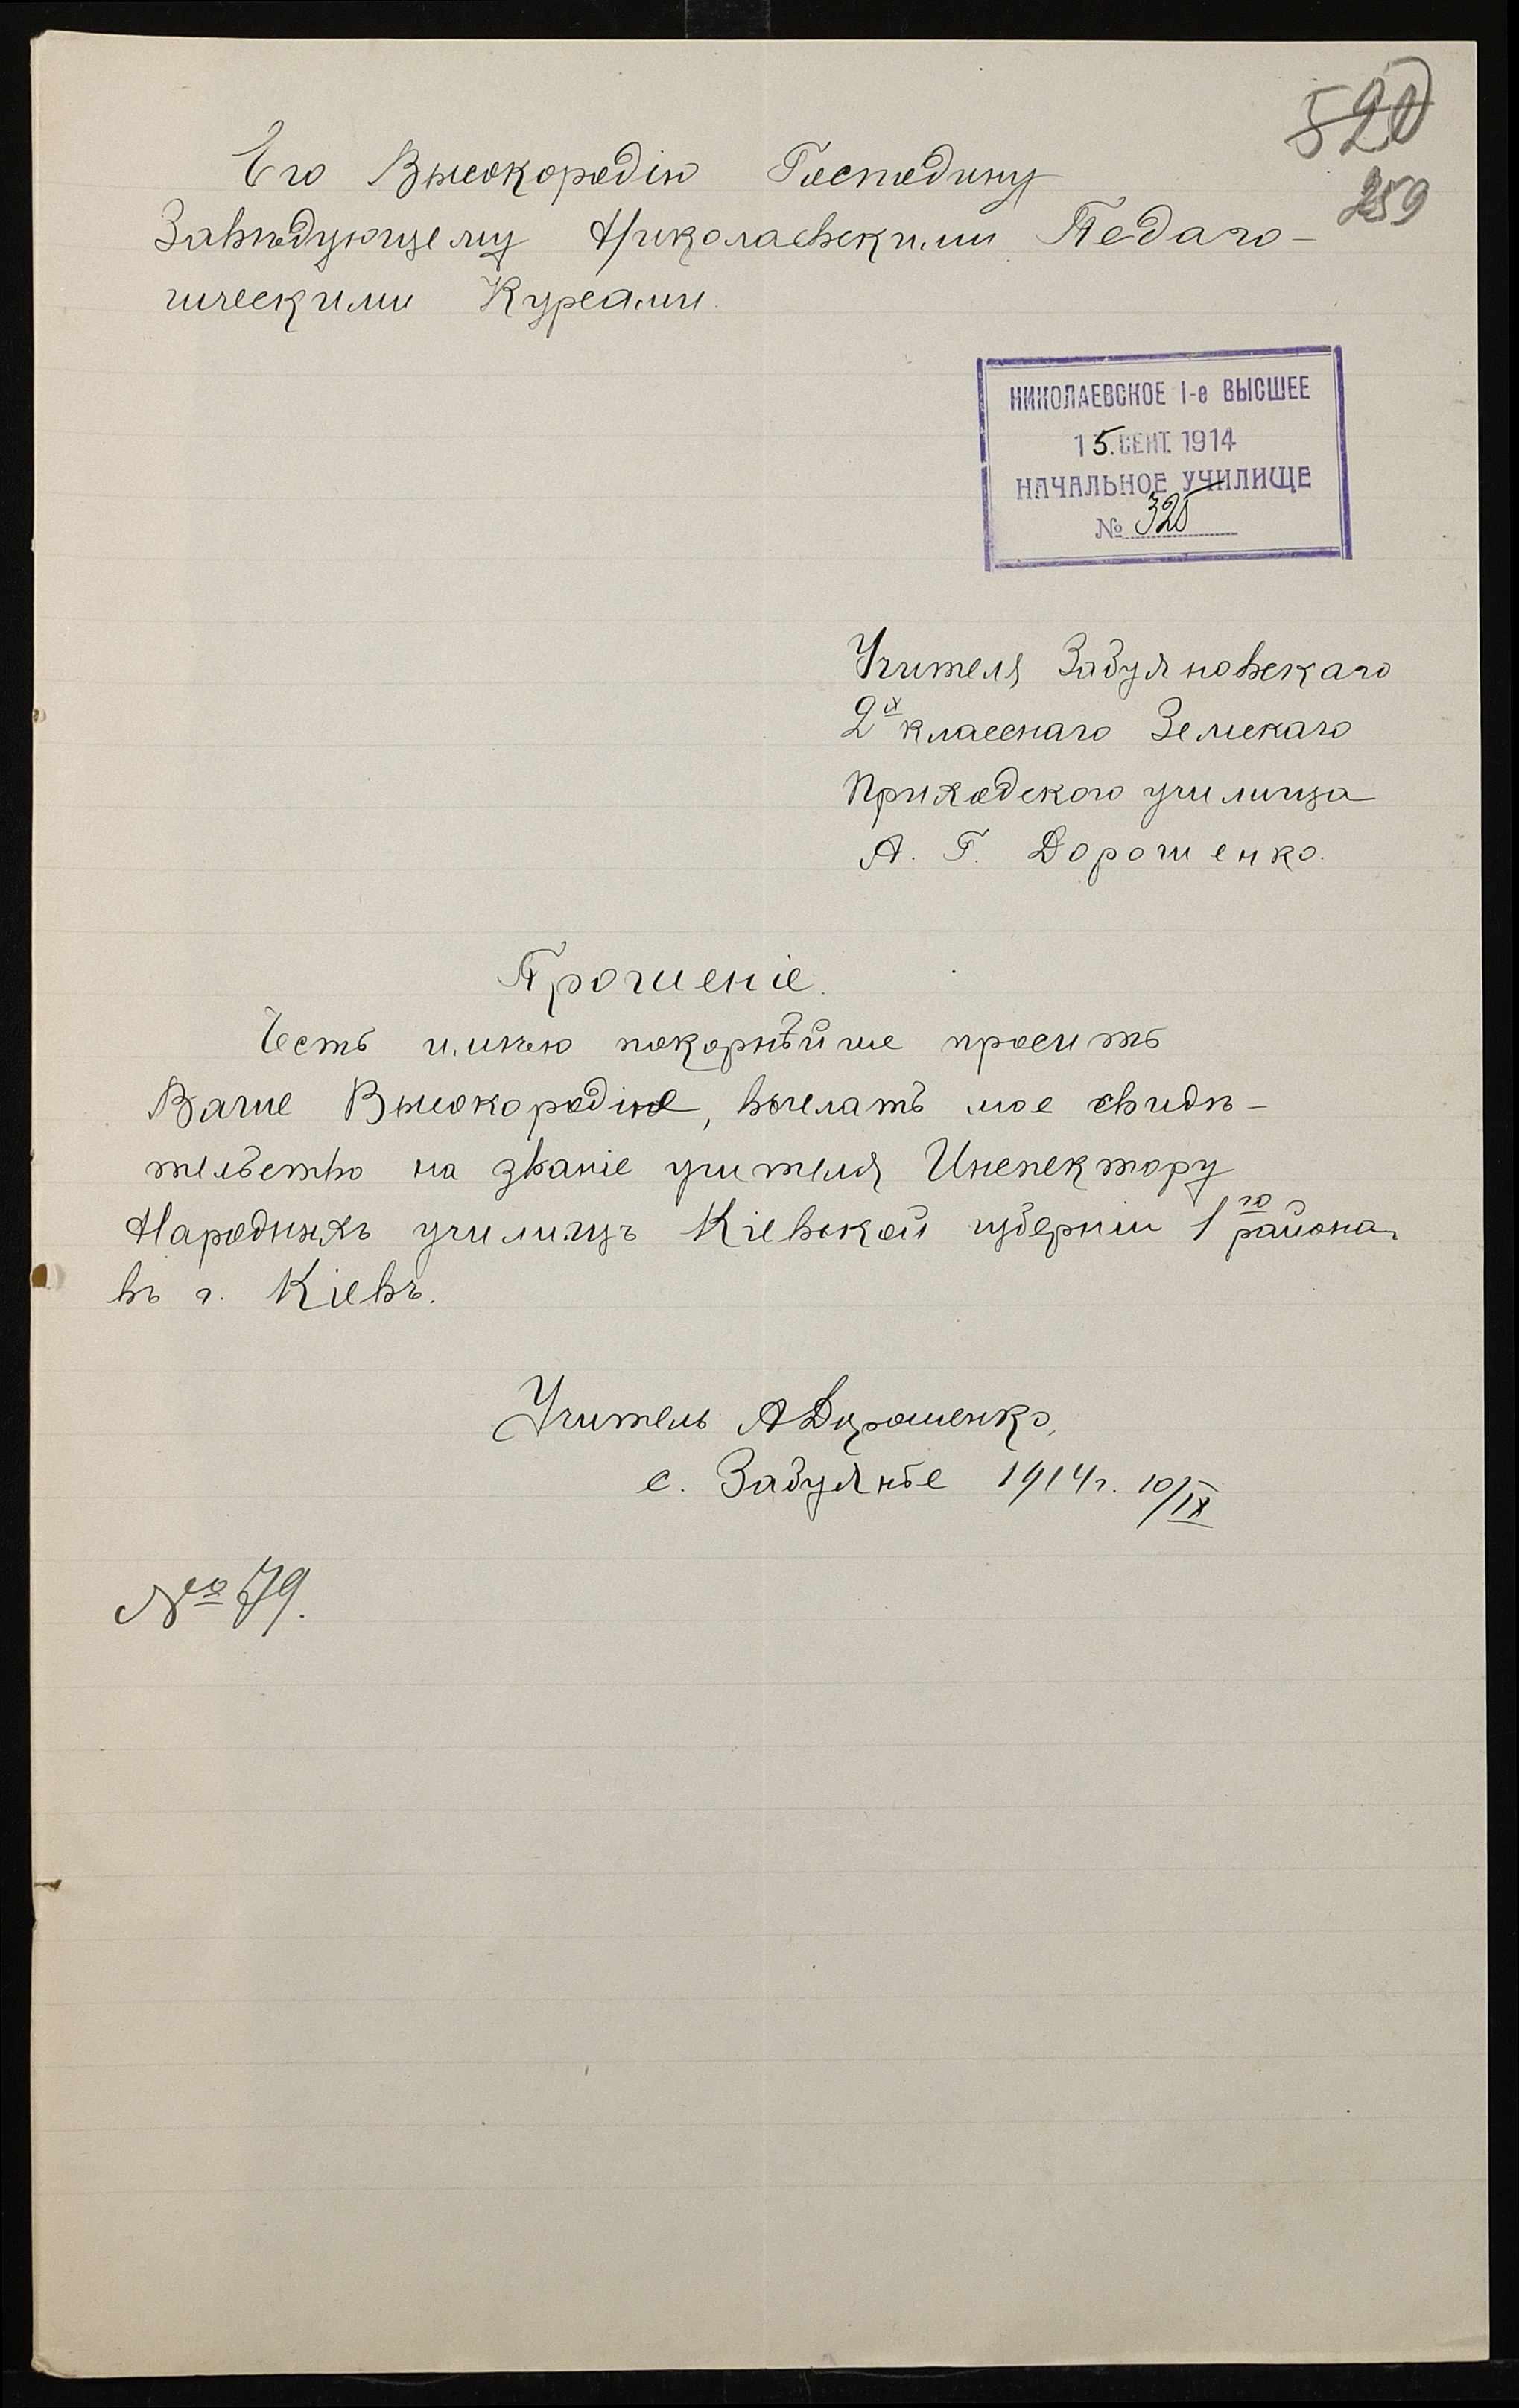 520
259
Его Высокородію Господину
Завѣдующему Николаевскими Педаго-
гическими Курсами.
НИКОЛАЕВСКОЕ I-е ВЫСШЕЕ
15. СЕНТ. 1914
НАЧАЛЬНОЕ УЧИЛИЩЕ
№ 325
Учителя Забуяновскаго
2х класснаго Земскаго
Приходского училища
А. Г. Дорошенко.
Прошеніе.
Честь имѣю покорнѣйше просить
Ваше Высокородіе, выслать мое свидѣ-
тельство на званіе учителя Инспектору
Народныхъ училищъ Кіевской губерніи 1го района
въ г. Кіевѣ.
Учитель А Дорошенко,
с. Забуянье 1914 г. 10/IX
№ 79.